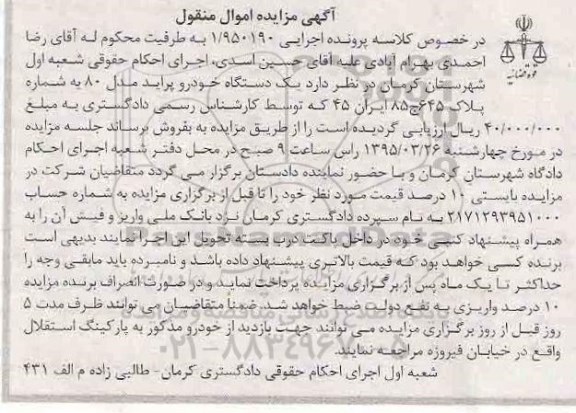 آگهی مزایده اموال منقول
در خصوص کلاسه پرونده اجرایی ۱/۹۵۰۱۹۰ به طرفیت محکوم له آقای رضا
احمدی بهرام آبادی علیه آقای حسین اسدی، اجرای احکام حقوقی شعبه اول
شهرستان کرمان در نظر دارد یک دستگاه خودرو پراید مدل ۸۰ به شماره
پلاک ۶۴۵ج۸۵ ایران ۴۵ که توسط کارشناس رسمی دادگستری به مبلغ
۴۰/۰۰۰/۰۰۰ ریال ارزیابی گردیده است را از طریق مزایده به بفروش برساند جلسه مزایده
در مورخ چهارشنبه ۱۳۹۵/۰۳/۲۶ راس ساعت ۹ صبح در محل دفتر شعبه اجرای احکام
دادگاه شهرستان کرمان و با حضور نماینده دادستان برگزار می گردد متقاضیان شرکت در
مزایده بایستی ۱۰ درصد قیمت مورد نظر خود را تا قبل از برگزاری مزایده به شماره حساب
۲۱۷۱۲۹۳۹۵۱۰۰۰ به نام سپرده دادگستری کرمان نزد بانک ملی واریز و فیش آن را به
همراه پیشنهاد کتبی خود در داخل پاکت درب بسته تحویل این اجرا نمایند بدیهی است
برنده کسی خواهد بود که قیمت بالاتری پیشنهاد داده باشد و نامبرده باید مابقی وجه را
حداکثر تا یک ماه پس از برگزاری مزایده پرداخت نماید و در صورت انصراف برنده مزایده
۱۰ درصد واریزی به نفع دولت ضبط خواهد شد. ضمناً متقاضیان می توانند ظرف مدت ۵
روز قبل از روز برگزاری مزایده می توانند جهت بازدید از خودرو مذکور به پارکینگ استقلال
واقع در خیابان فیروزه مراجعه نمایند.
شعبه اول اجرای احکام حقوقی دادگستری کرمان- طالبی زاده م الف ۴۳۱
۰۲۱-۸۸۳۴۹۶۷۰-۵